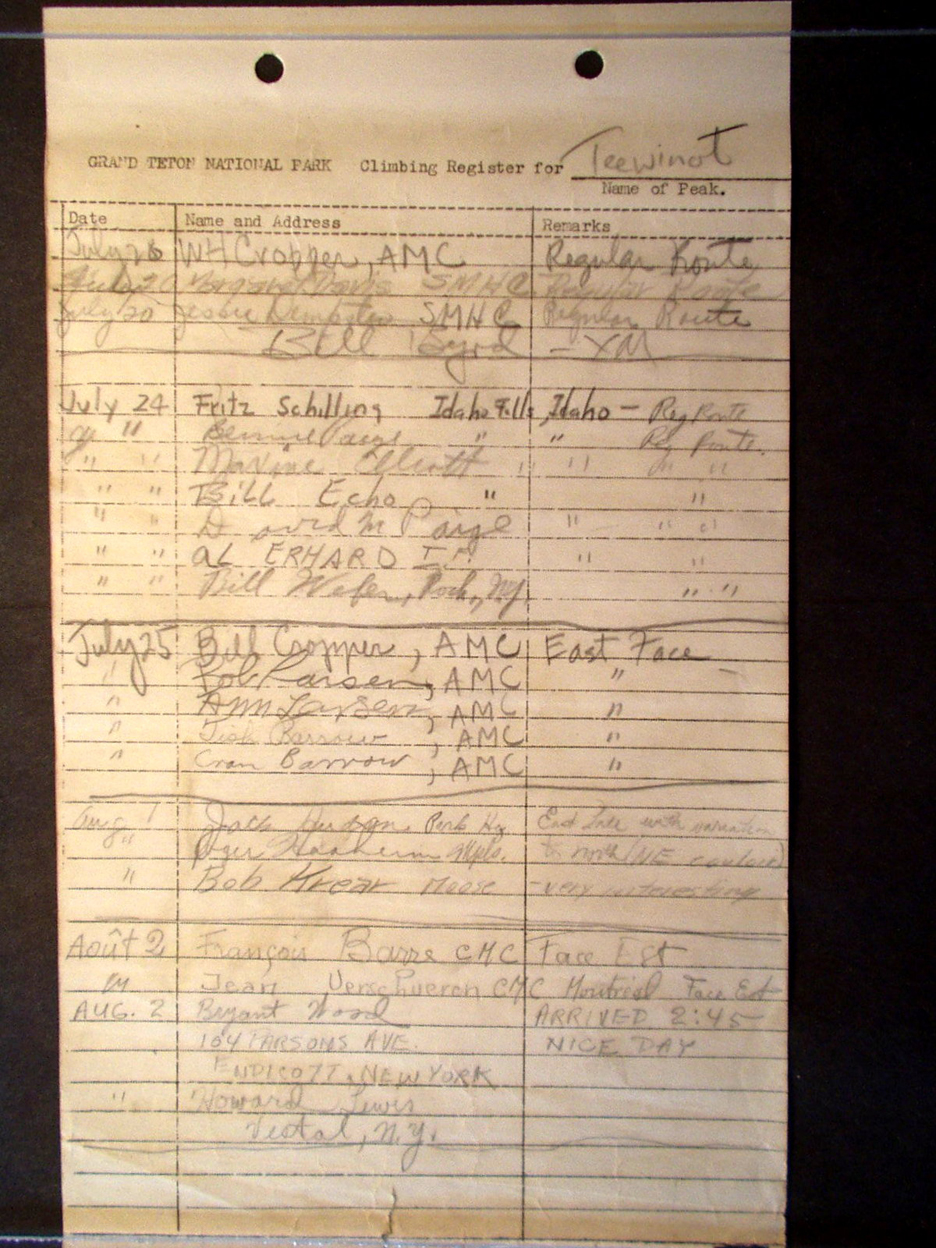 GRAND TETON NATIONAL PARK Climbing Register for Teewinot
Name of Peak.
Date Name and Address Remarks
July 20 WH Cropper, AMC Regular Route
SMHC Regular Route
July 20 Jessie Dempster SMHC Regular Route
Bill Byrd - XM
July 24 Fritz Schilling Idaho Falls, Idaho - Reg Route
" " Bennie Paige " " Reg Route.
" " Maxine Elliott " " " "
" " Bill Echo " "
" " David M Paige " " "
" " AL ERHARD I.F. " "
" " Bill Wafer, Roch, N.Y. " "
July 25 Bill Cropper, AMC East Face
" Bob Larsen, AMC "
" Ann Larsen, AMC "
" Barrow, AMC "
" Cran Barrow, AMC "
Aug 1 Jack with variation
" Mpls. (NE
" Bob Krear Moose - very interesting
Août 2 François Barre CMC Face Est
" Jean Verschueren CMC Montréal Face Est
AUG. 2 Bryant Wood ARRIVED 2:45
104 PARSONS AVE. NICE DAY
ENDICOTT, NEW YORK
" Howard Lewis
Vestal, N.Y.